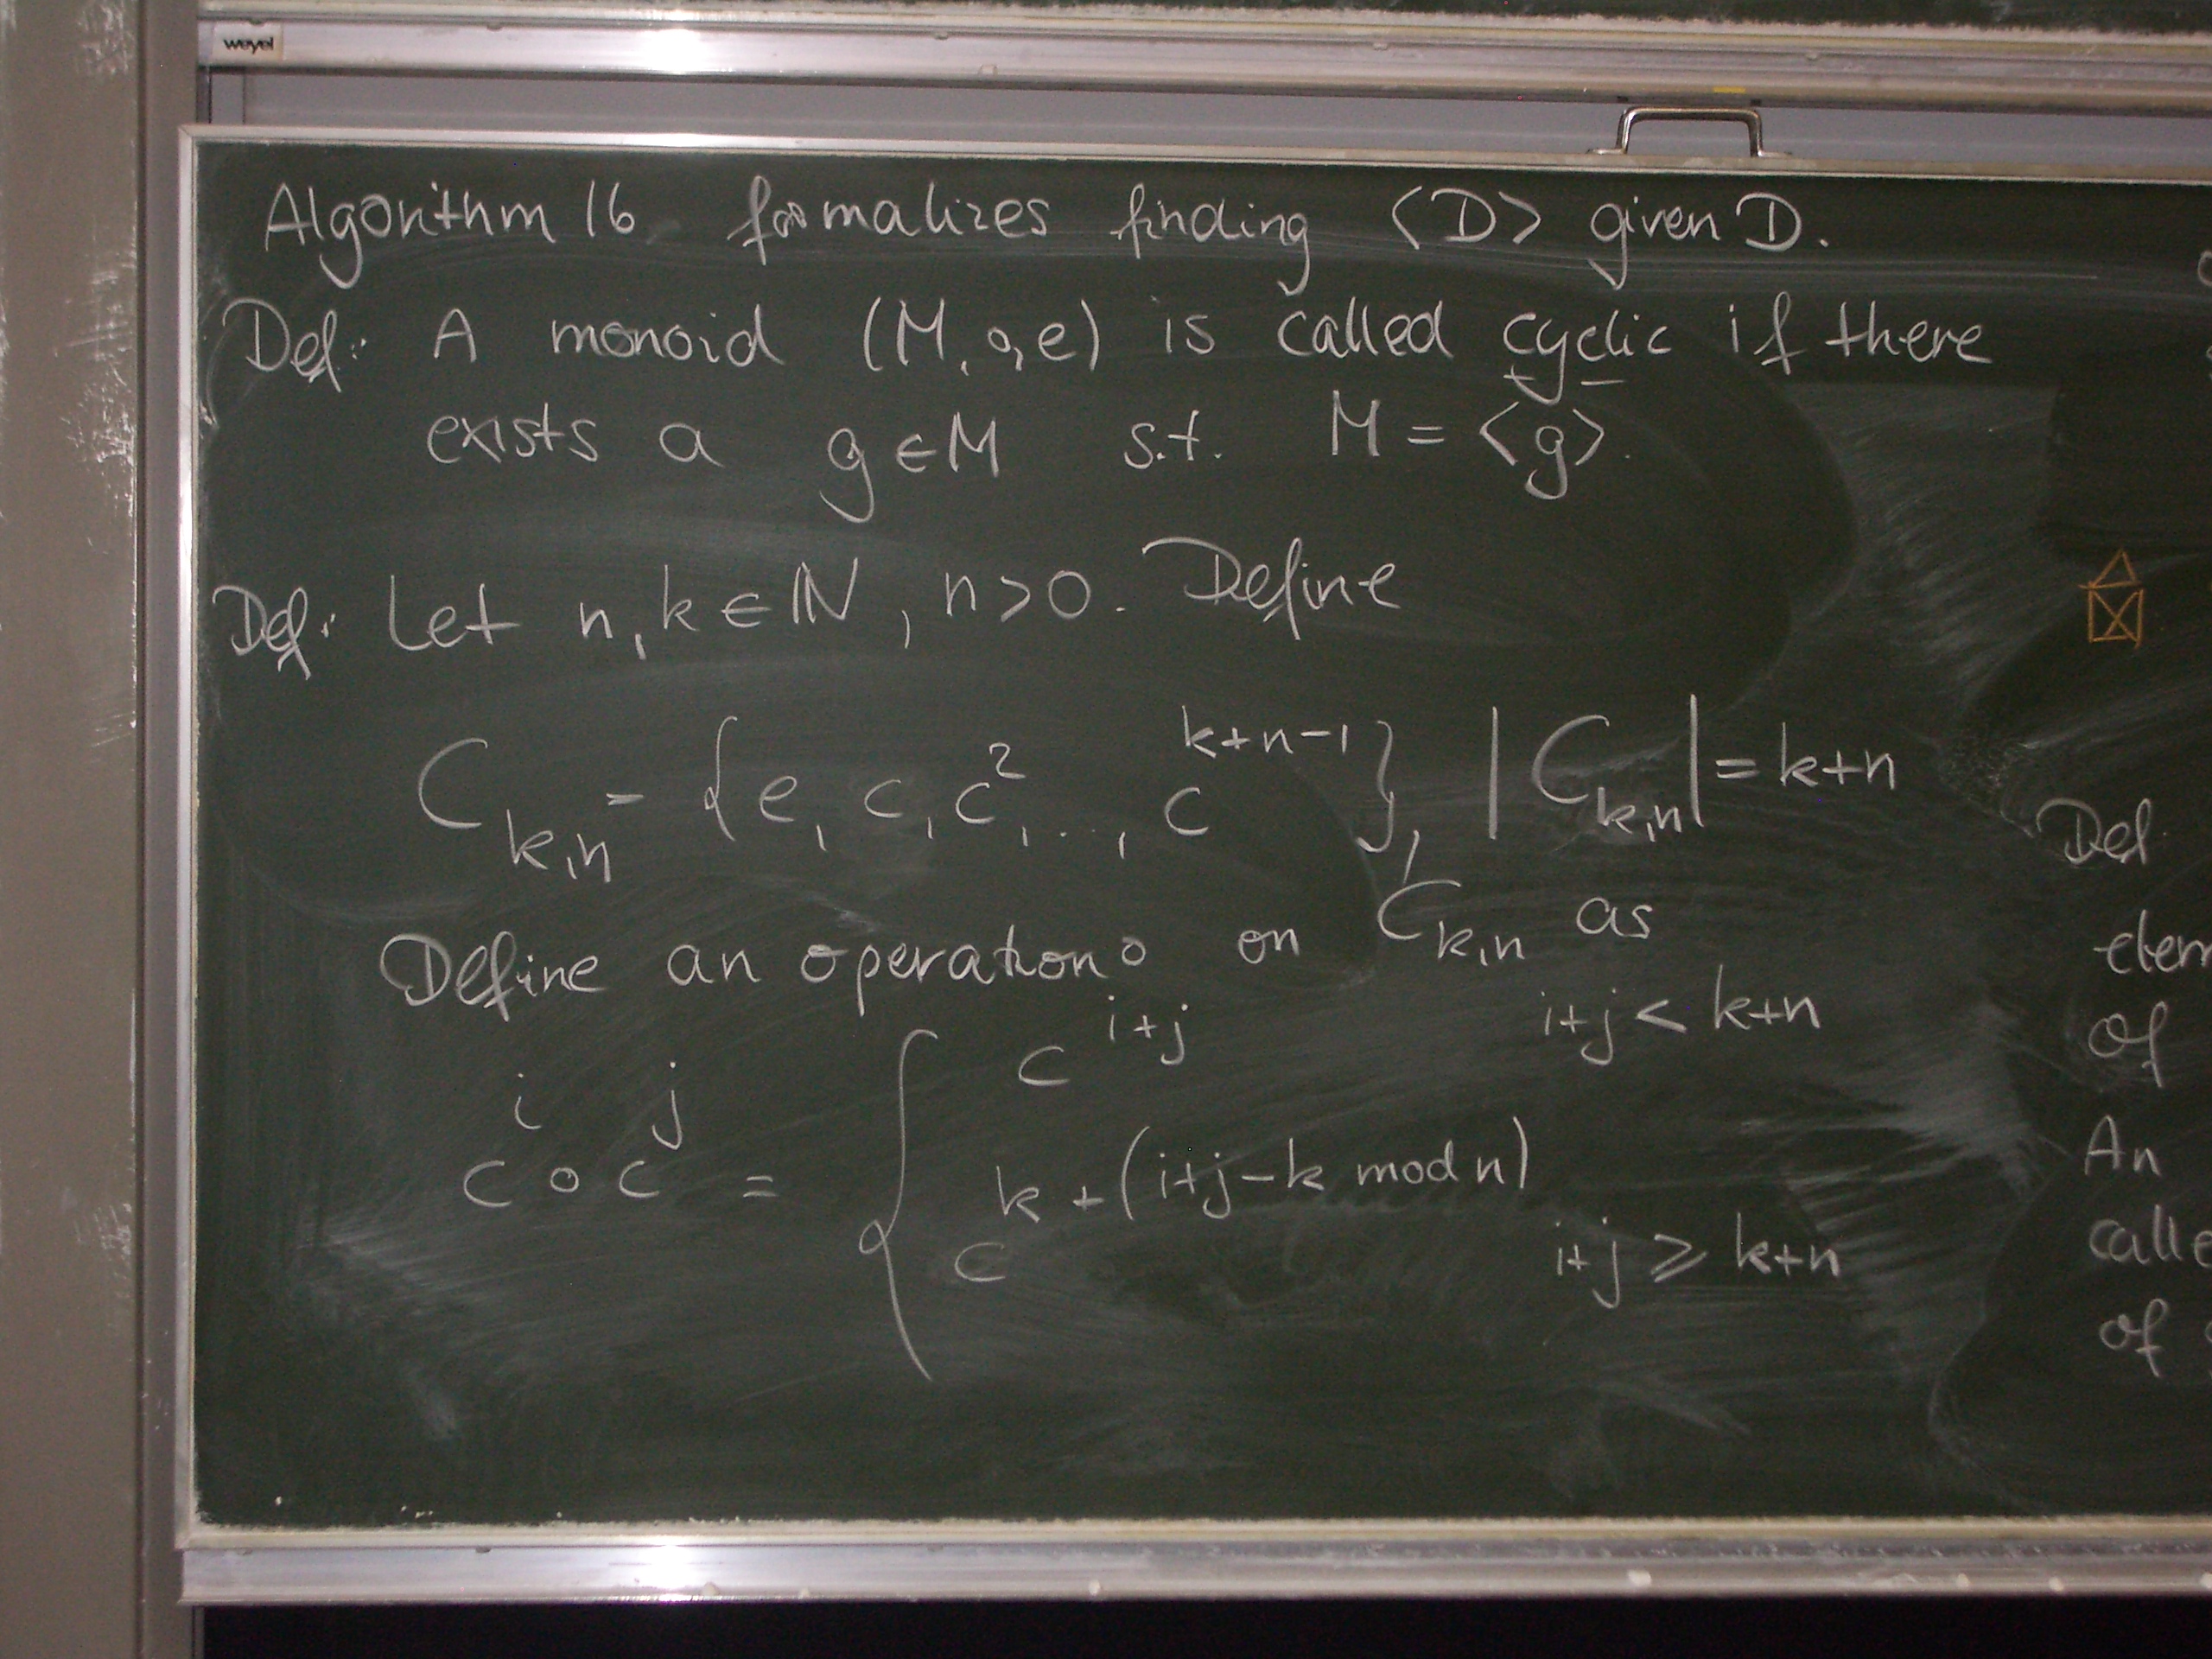 weyel
Algorithm 16 formalizes finding <D> given D.
Def: A monoid (M, ∘, e) is called cyclic if there
exists a g ∈ M s.t. M = <g>.
Def: Let n, k ∈ ℕ, n > 0. Define
C_{k,n} = {e, c, c², ..., c^{k+n-1}}, |C_{k,n}| = k+n
Define an operation ∘ on C_{k,n} as
c^i ∘ c^j = { c^{i+j} i+j < k+n
c^{k+(i+j-k mod n)} i+j ⩾ k+n
Def
of
An
of